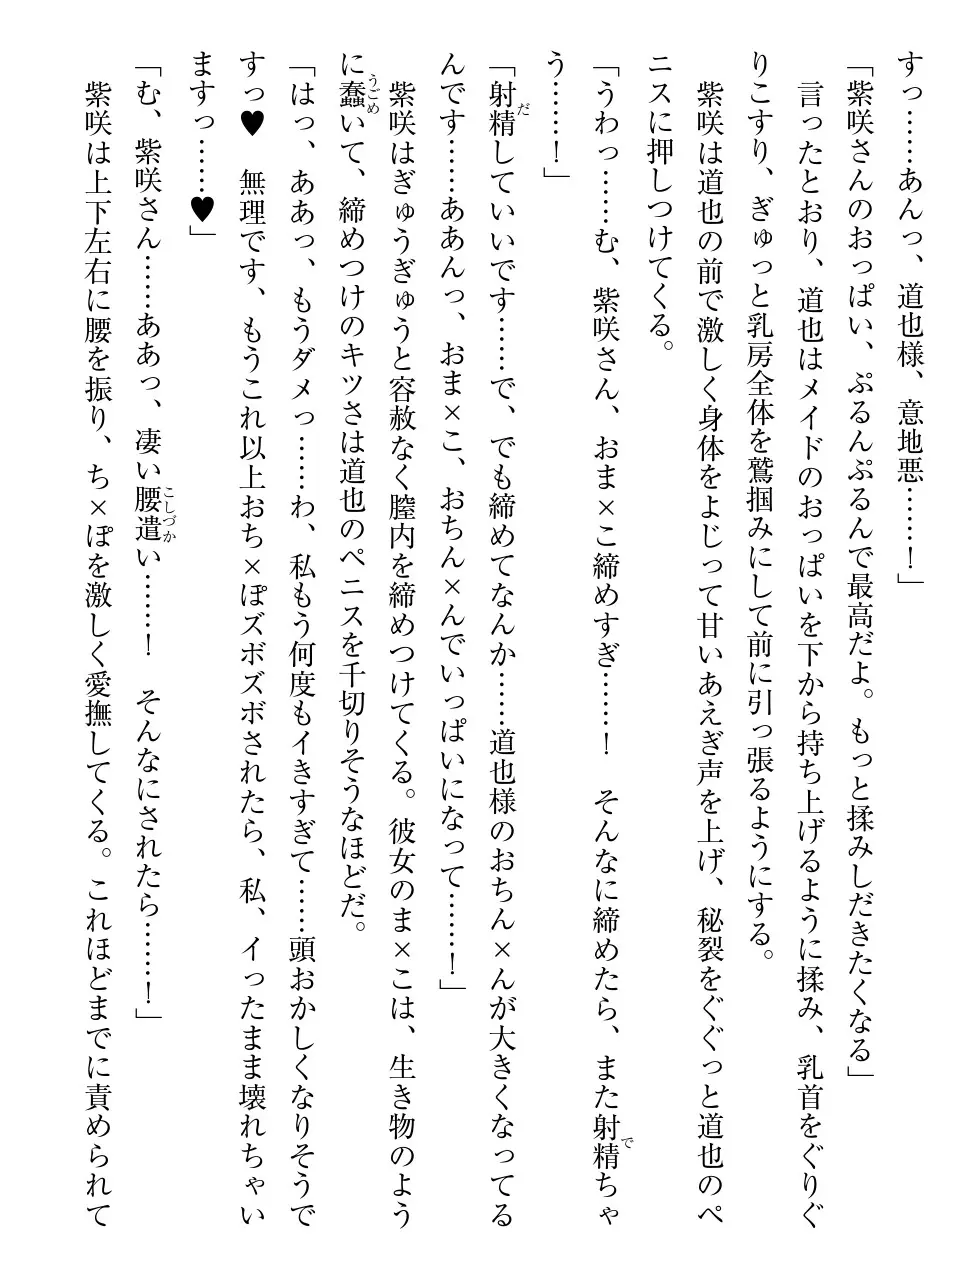 すっ……あんっ、道也様、意地悪……！」
「紫咲さんのおっぱい、ぷるんぷるんで最高だよ。もっと揉みしだきたくなる」
　言ったとおり、道也はメイドのおっぱいを下から持ち上げるように揉み、乳首をぐりぐ
りこすり、ぎゅっと乳房全体を鷲掴みにして前に引っ張るようにする。
　紫咲は道也の前で激しく身体をよじって甘いあえぎ声を上げ、秘裂をぐぐっと道也のペ
ニスに押しつけてくる。
で
「うわっ……む、紫咲さん、おま×こ締めすぎ……！　そんなに締めたら、また射精ちゃ
う……！」
だ
「射精していいです……で、でも締めてなんか……道也様のおちん×んが大きくなってる
んです……ああんっ、おま×こ、おちん×んでいっぱいになって……！」
　紫咲はぎゅうぎゅうと容赦なく膣内を締めつけてくる。彼女のま×こは、生き物のよう
うごめ
に蠢いて、締めつけのキツさは道也のペニスを千切りそうなほどだ。
「はっ、ああっ、もうダメっ……わ、私もう何度もイきすぎて……頭おかしくなりそうで
すっ♥　無理です、もうこれ以上おち×ぽズボズボされたら、私、イったまま壊れちゃい
ますっ……♥」
こしづか
「む、紫咲さん……ああっ、凄い腰遣い……！　そんなにされたら……！」
　紫咲は上下左右に腰を振り、ち×ぽを激しく愛撫してくる。これほどまでに責められて